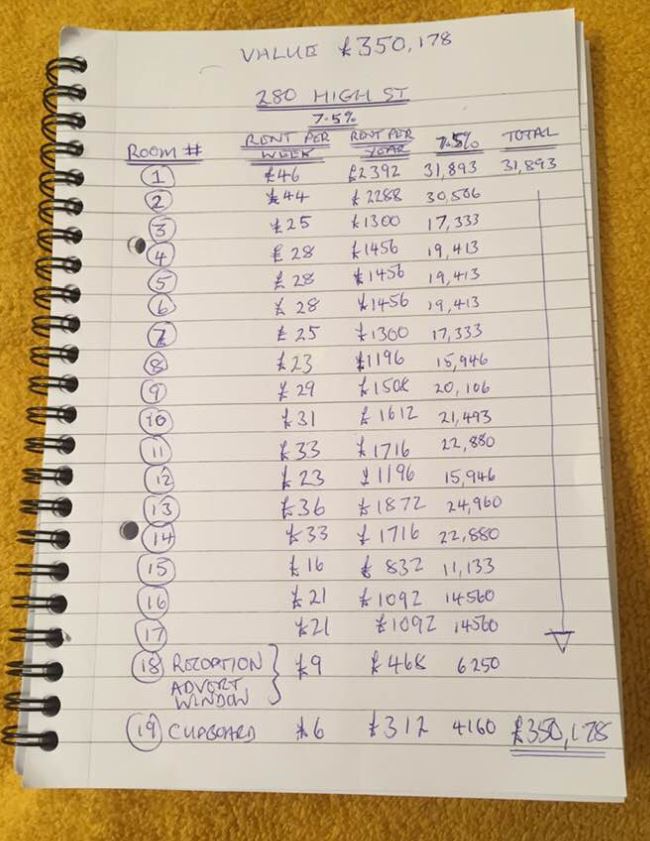 VALUE £350,178
280 HIGH ST
7.5%
ROOM # RENT PER WEEK RENT PER YEAR 7.5% TOTAL
1 £46 £2392 31,893 31,893
2 £44 £2288 30,506
3 £25 £1300 17,333
4 £28 £1456 19,413
5 £28 £1456 19,413
6 £28 £1456 19,413
7 £25 £1300 17,333
8 £23 £1196 15,946
9 £29 £1508 20,106
10 £31 £1612 21,493
11 £33 £1716 22,880
12 £23 £1196 15,946
13 £36 £1872 24,960
14 £33 £1716 22,880
15 £16 £832 11,133
16 £21 £1092 14560
17 £21 £1092 14560
18 RECEPTION ADVERT WINDOW £9 £468 6250
19 CUPBOARD £6 £312 4160 £350,178